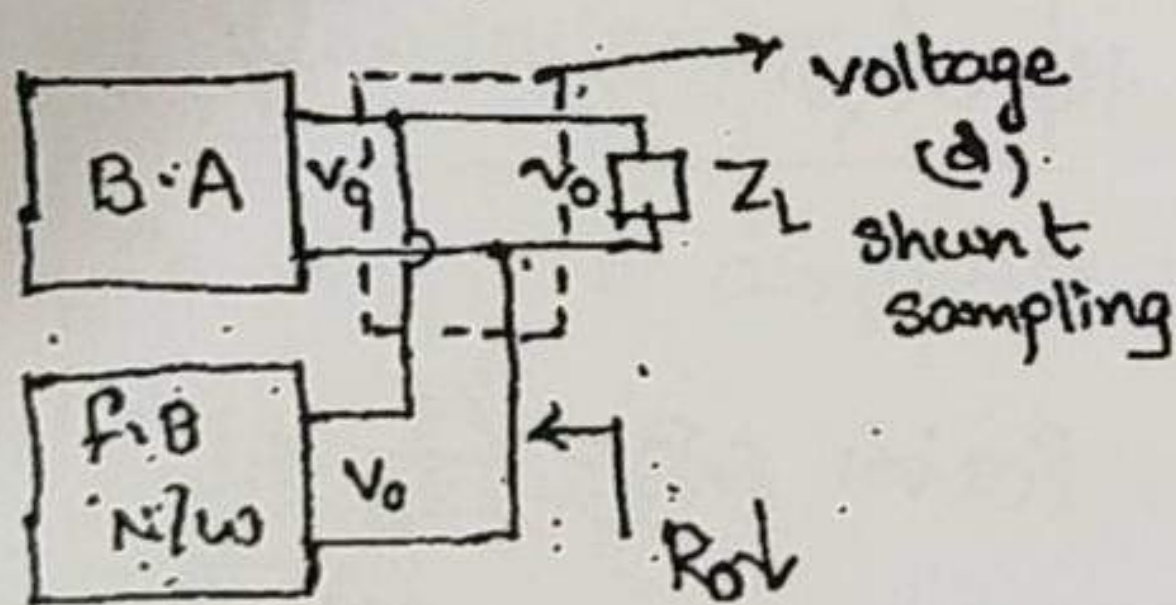 B.A
Vo
Vo
ZL
voltage
(or)
shunt
sampling
F.B
N/w
Vo
Ro↓